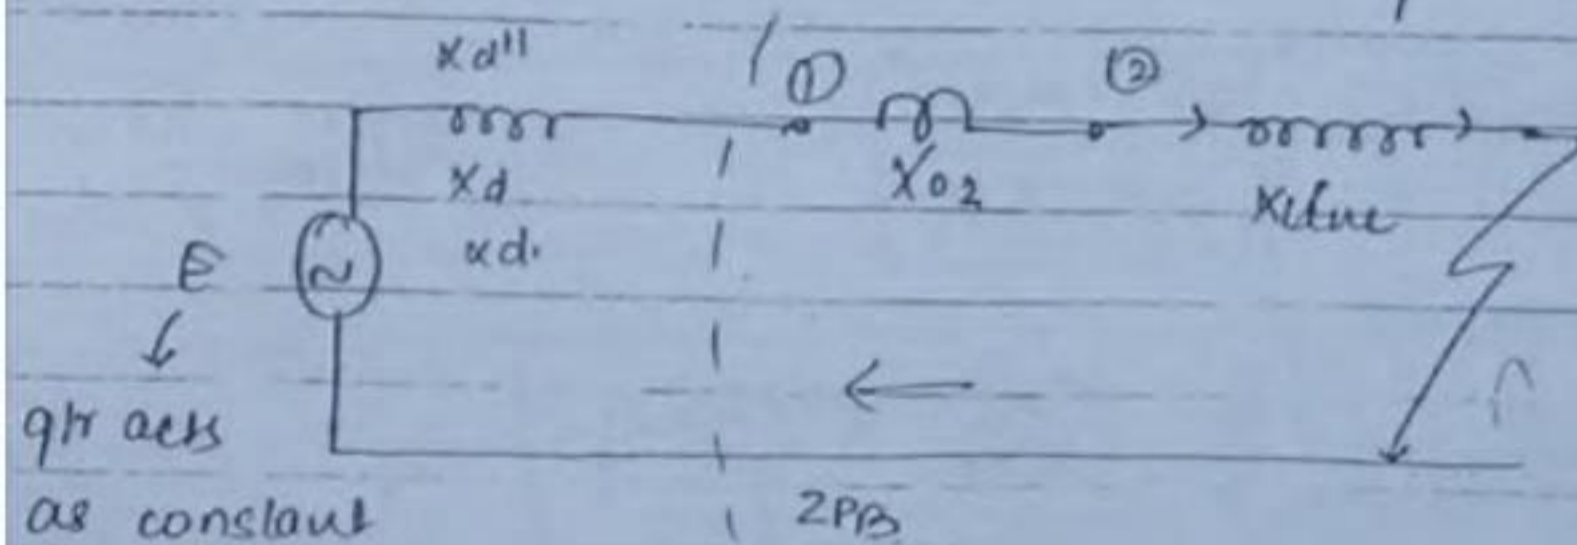 xd"
① ②
Xd
X02
Xline
xd'
E
gtr acts
as constant